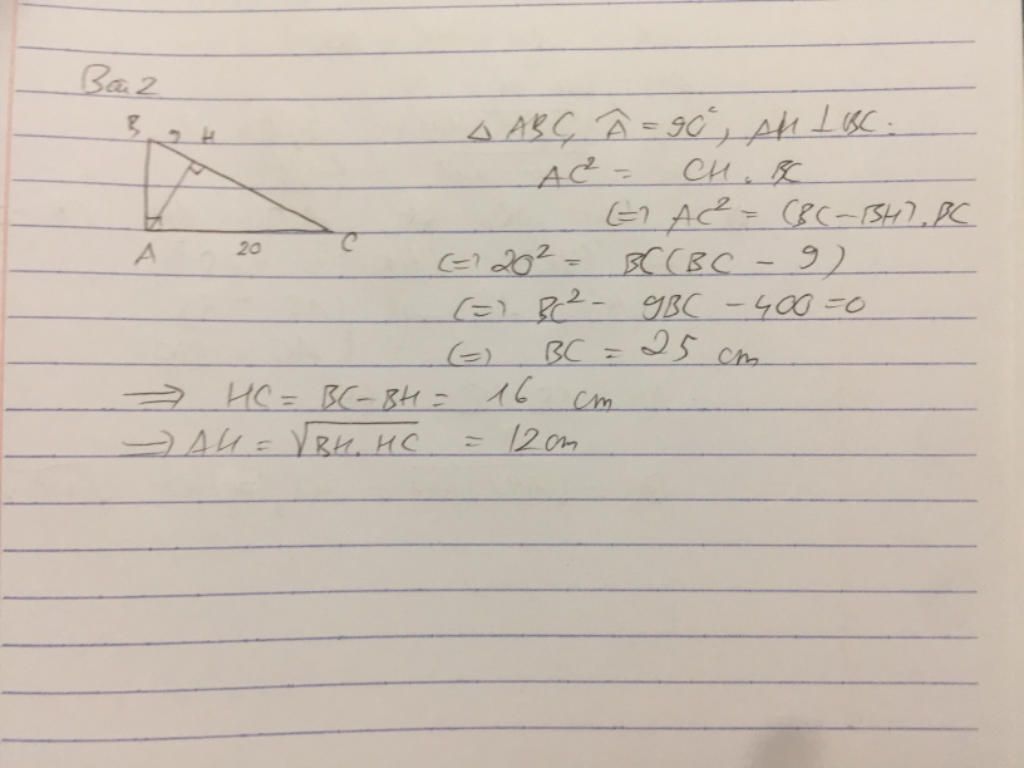 Bài 2
B 9 H
A 20 C
△ ABC, Â = 90°, AH ⊥ BC:
AC² = CH . BC
(=) AC² = (BC - BH) . BC
(=) 20² = BC(BC - 9)
(=) BC² - 9BC - 400 = 0
(=) BC = 25 cm
=> HC = BC - BH = 16 cm
=> AH = √BH . HC = 12cm